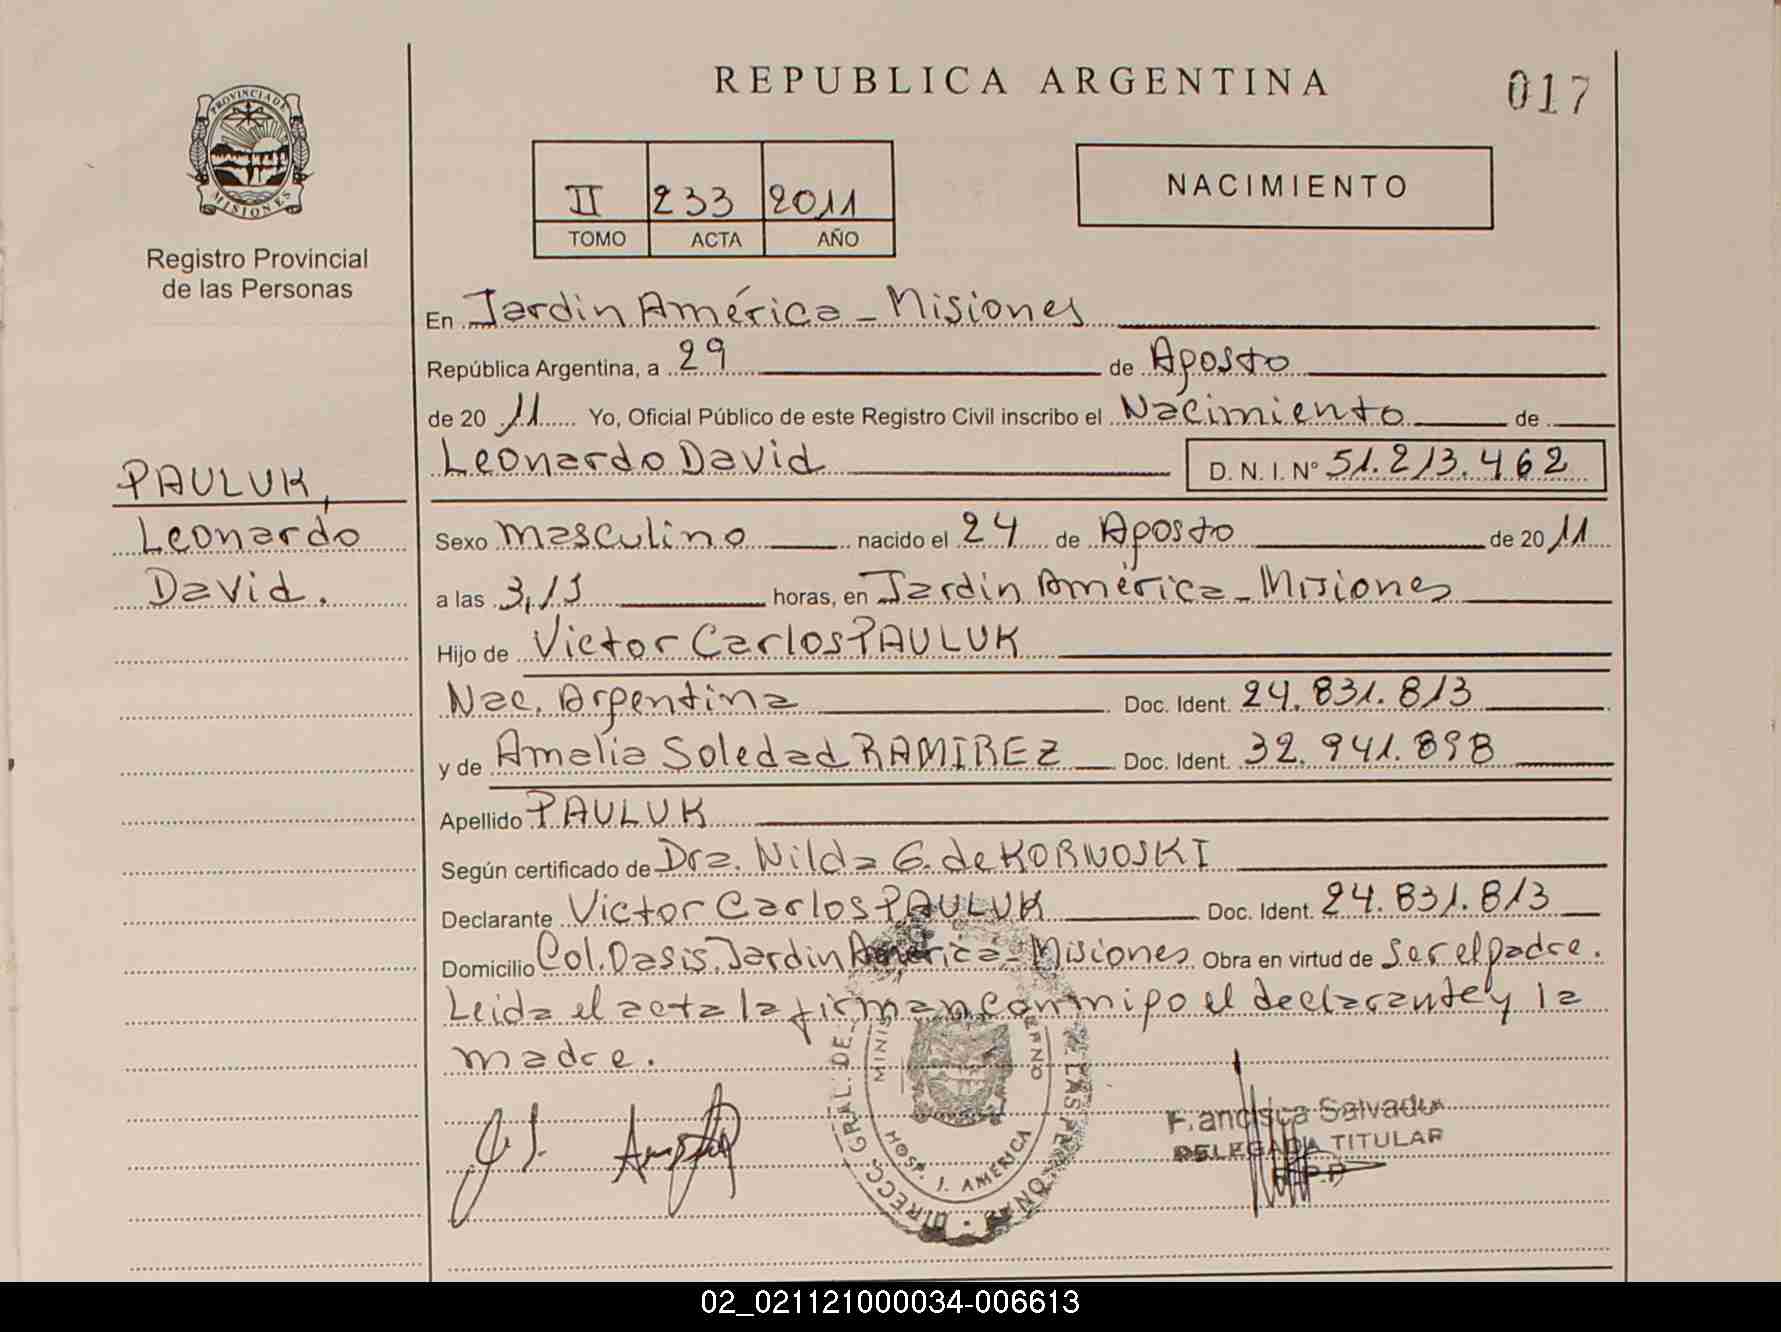 REPUBLICA ARGENTINA
017
PROVINCIA DE MISIONES
Registro Provincial
de las Personas
II 233 2011
TOMO ACTA AÑO
NACIMIENTO
En Jardin América - Misiones
República Argentina, a 29 de Agosto
de 20 11 Yo, Oficial Público de este Registro Civil inscribo el Nacimiento de
Leonardo David D. N. I. N° 51.213.462
PAULUK,
Leonardo
David.
Sexo masculino nacido el 24 de Agosto de 20 11
a las 3,15 horas, en Jardin América - Misiones
Hijo de Victor Carlos PAULUK
Nac. Argentina Doc. Ident. 24.831.813
y de Amalia Soledad RAMIREZ Doc. Ident. 32.941.898
Apellido PAULUK
Según certificado de Dra. Nilda G. de KORNOSKI
Declarante Victor Carlos PAULUK Doc. Ident. 24.831.813
Domicilio Col. Oasis. Jardin América - Misiones Obra en virtud de ser el padre.
Leida el acta la firman conmigo el declarante y la
madre.
DIRECC. GRAL. DE LAS PERSONAS
HOSP. J. AMERICA
Francisca Salvadur
DELEGADA TITULAR
R.P.P
02_021121000034-006613